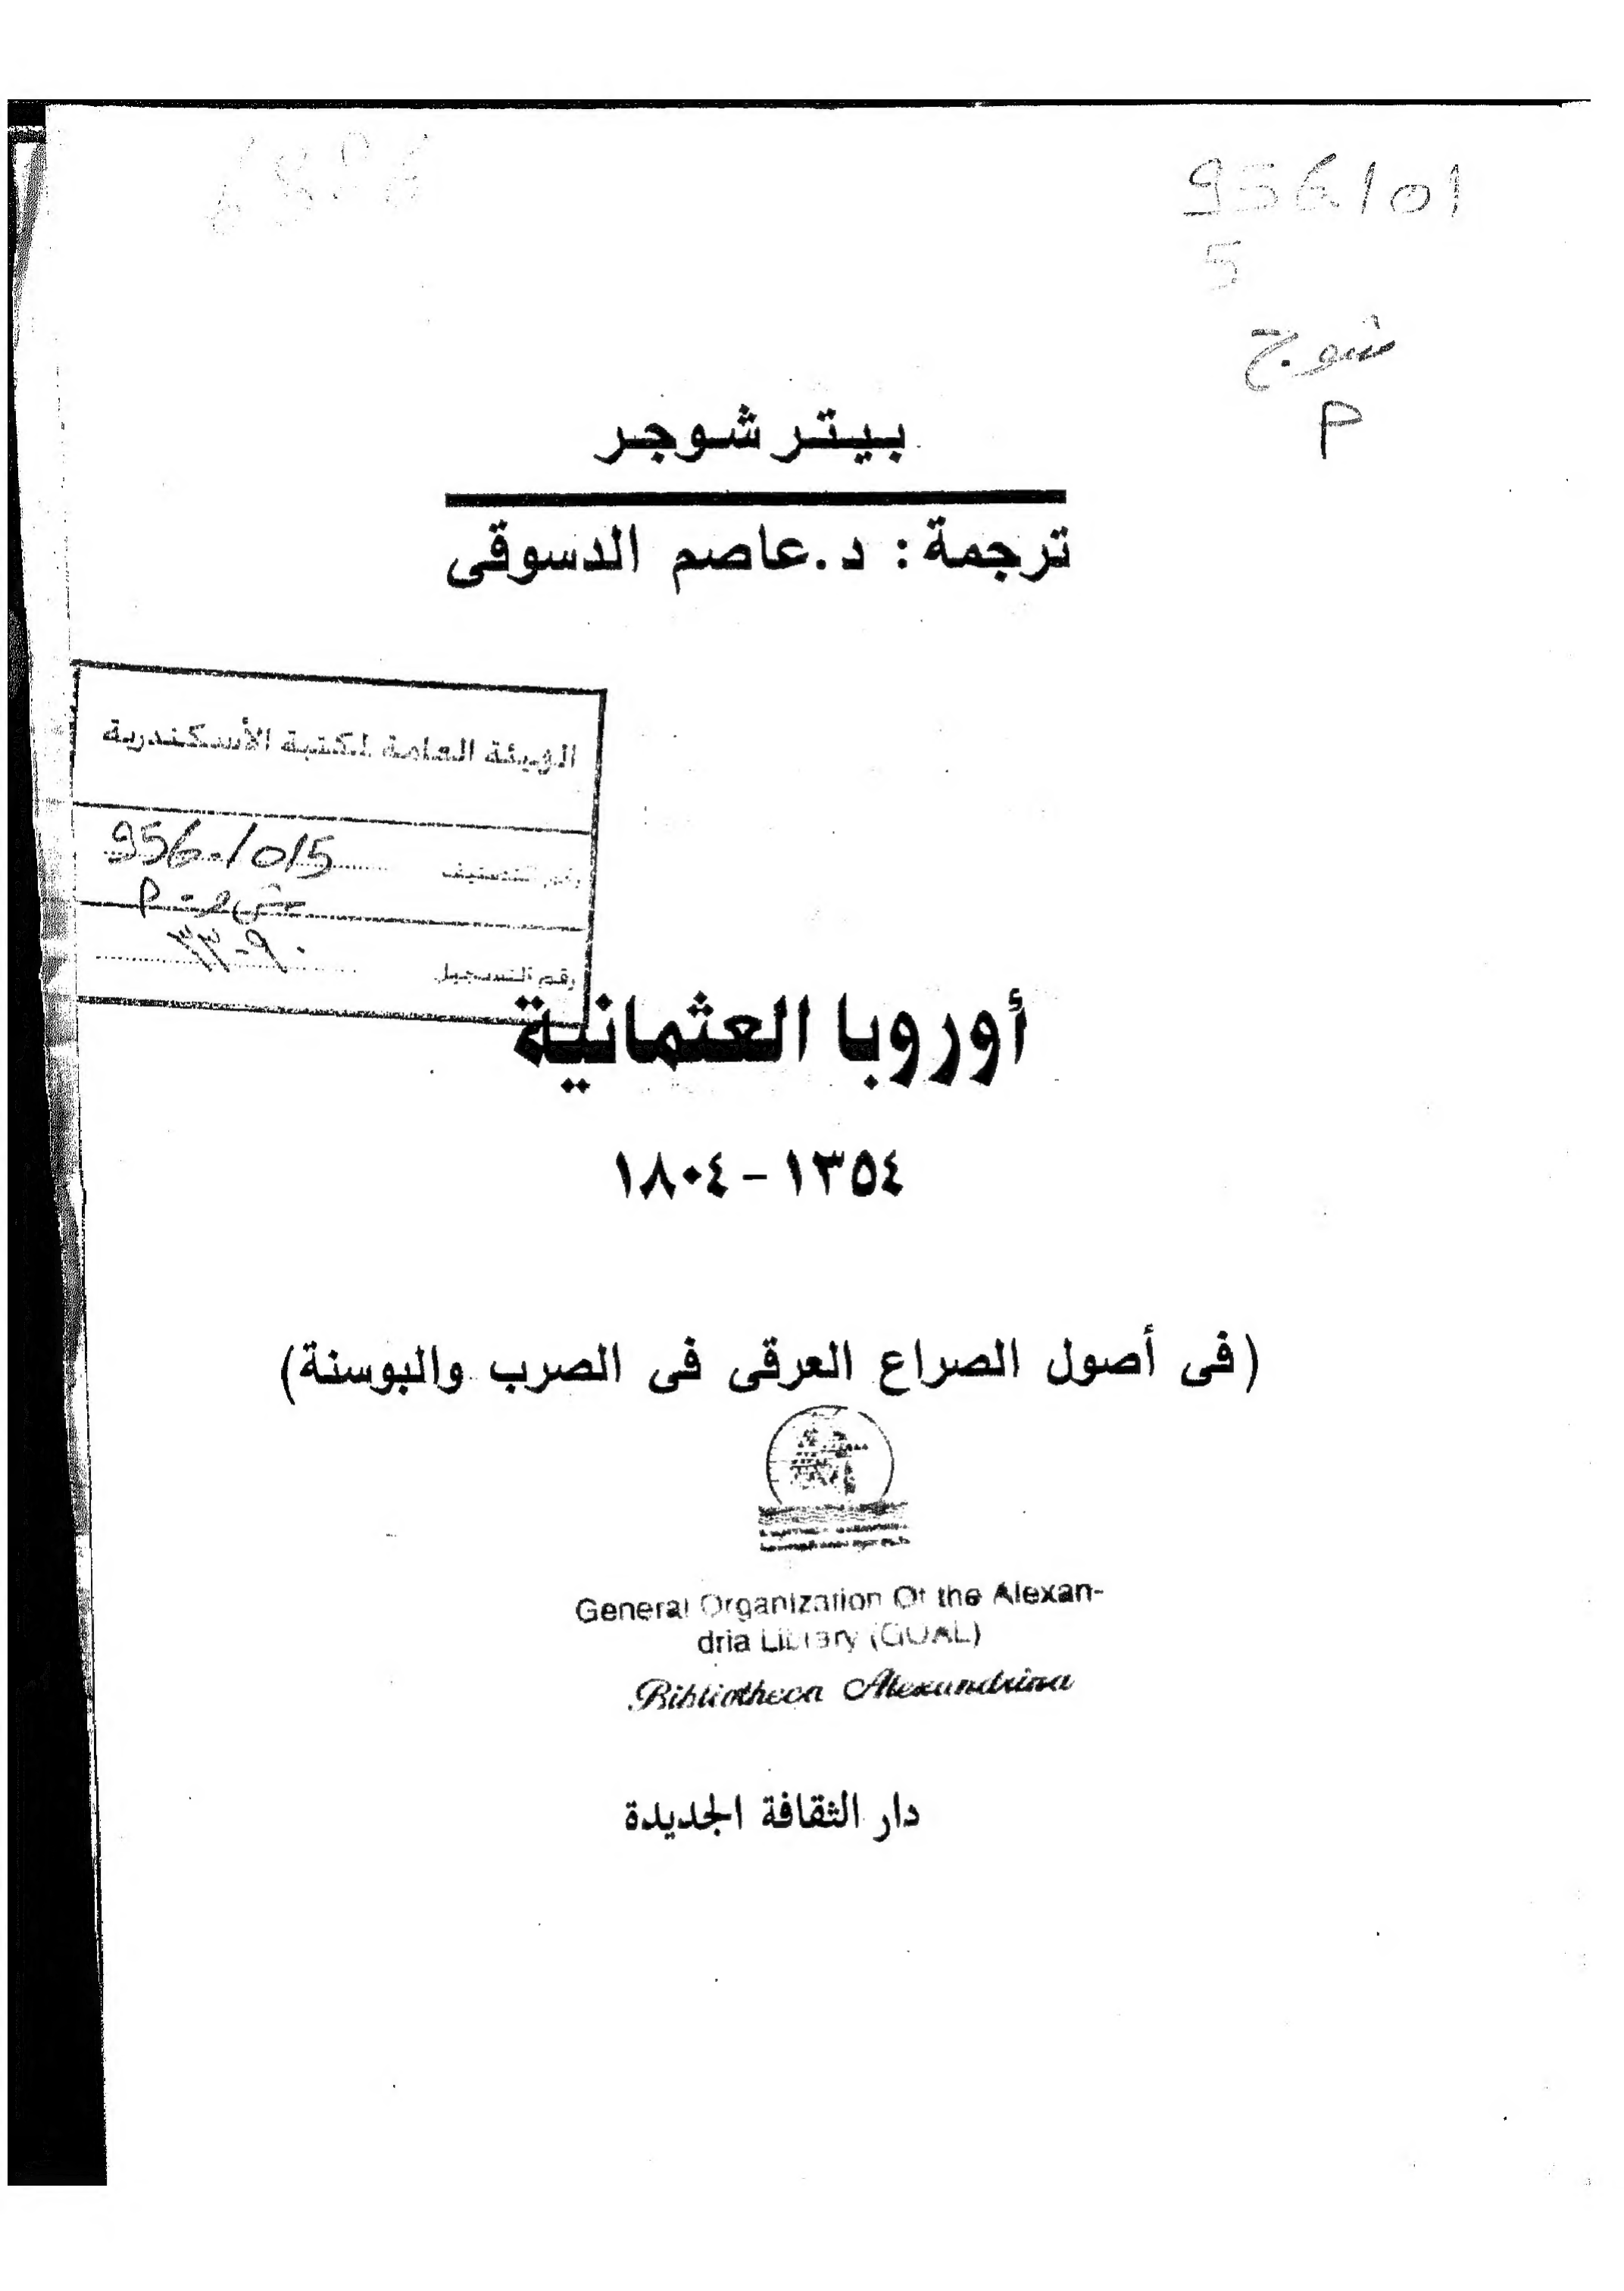 956101
5
شوج
P
بيتر شوجر
ترجمة: د. عاصم الدسوقى
الهيئة العامة لمكتبة الأسكندرية
رقم التصنيف 956.1015
رقم التسجيل
أوروبا العثمانية
١٣٥٤ - ١٨٠٤
(فى أصول الصراع العرقى فى الصرب والبوسنة)
General Organization Of the Alexan-
dria Library (GOAL)
Bibliotheca Alexandrina
دار الثقافة الجديدة